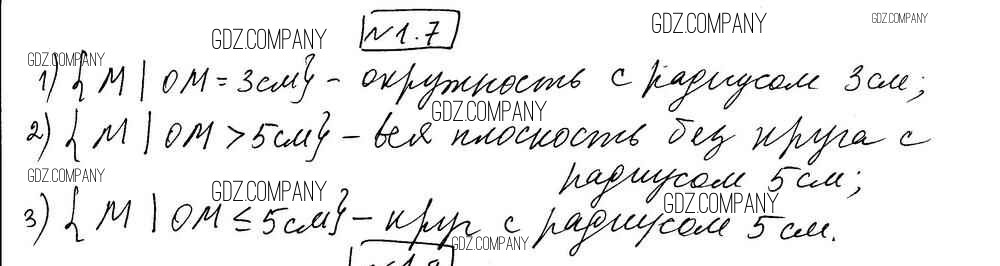 №1.7
1) { M | OM = 3см} - окружность с радиусом 3см;
2) { M | OM > 5см} - вся плоскость без круга с
радиусом 5см;
3) { M | OM ≤ 5см} - круг с радиусом 5см.
GDZ.COMPANY
GDZ.COMPANY
GDZ.COMPANY
GDZ.COMPANY
GDZ.COMPANY
GDZ.COMPANY
GDZ.COMPANY
GDZ.COMPANY
GDZ.COMPANY